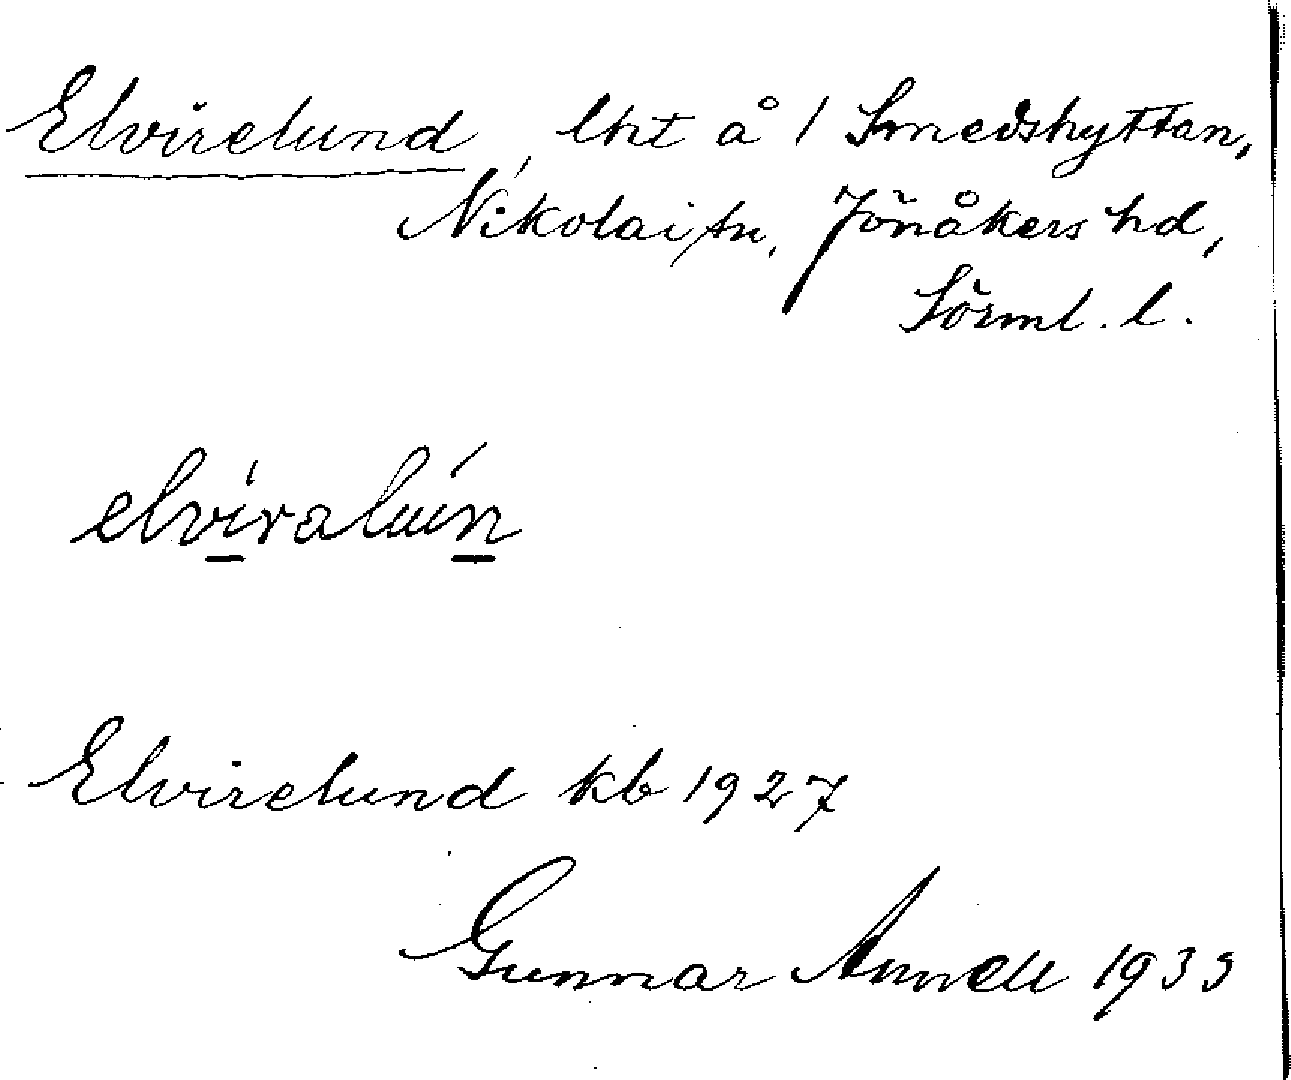 Elvirelund, lht å 1 Smedshyttan,
Nikolai sn, Jönåkers hd,
Sörml. l.
elvíralún
Elvirelund kb 1927
Gunnar 1935